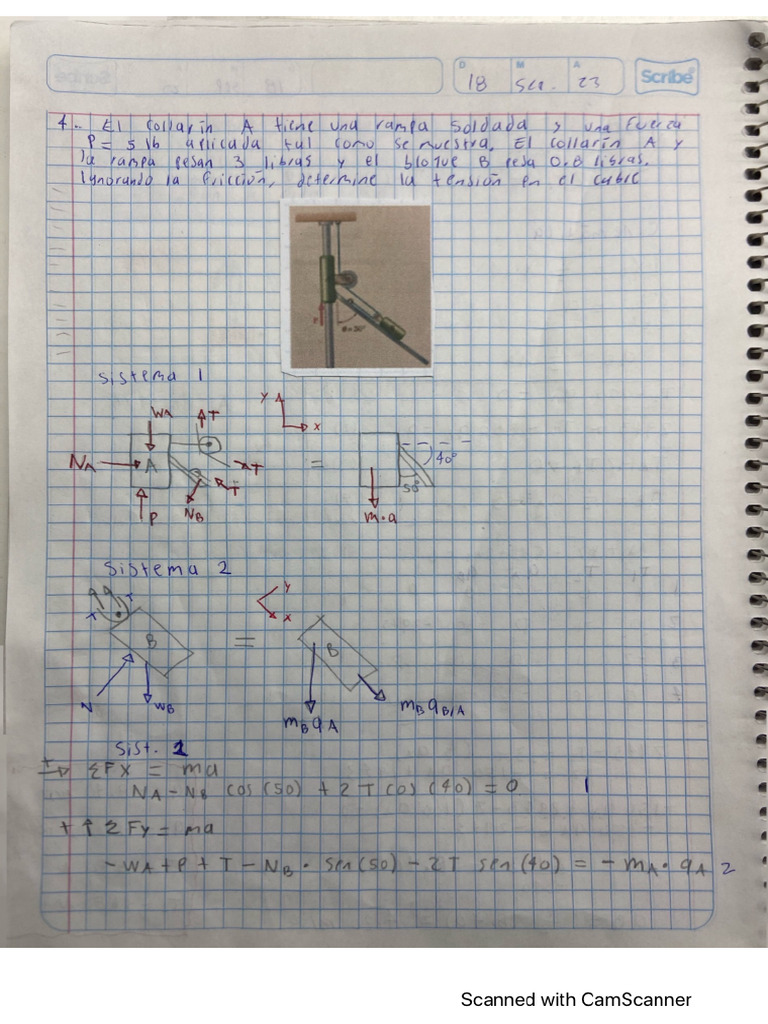 D M A
18 Sep. 23
Scribe
4.- El collarín A tiene una rampa soldada y una fuerza
P= 5 lb aplicada tal como se muestra. El collarín A y
la rampa pesan 3 libras y el bloque B pesa 0.8 libras.
Ignorando la fricción, determine la tensión en el cable
Sistema 1
WA T Y
NA A T X = 40°
T 50°
P NB m·a
Sistema 2
T T B Y X = B
N WB mB aA mB aB/A
Sist. 1
+→ ΣFx = ma
NA - NB cos (50) + 2 T cos (40) = 0 1
+ ↑ ΣFy = ma
-WA + P + T - NB · sen (50) - 2T sen (40) = - mA · aA 2
Scanned with CamScanner